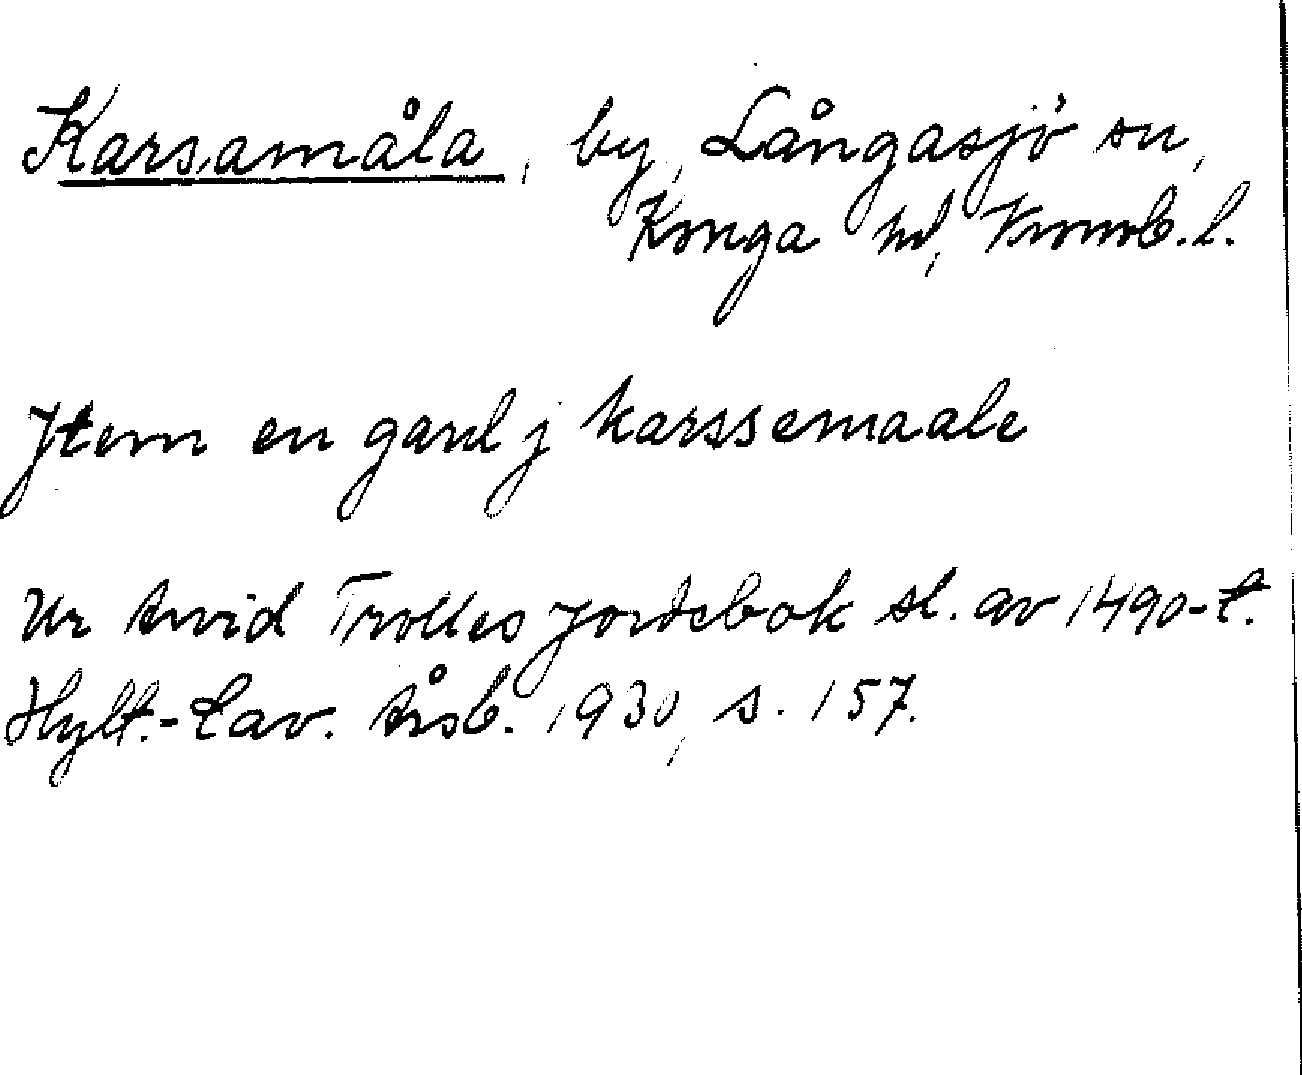 Karsamåla, by, Långasjö sn,
Konga hd, Kronob.l.
Jtem en gard j karssemaale
Ur Arvid Trolles jordebok sl. av 1490-t.
Hylt.-Cav. Årsb. 1930, s. 157.